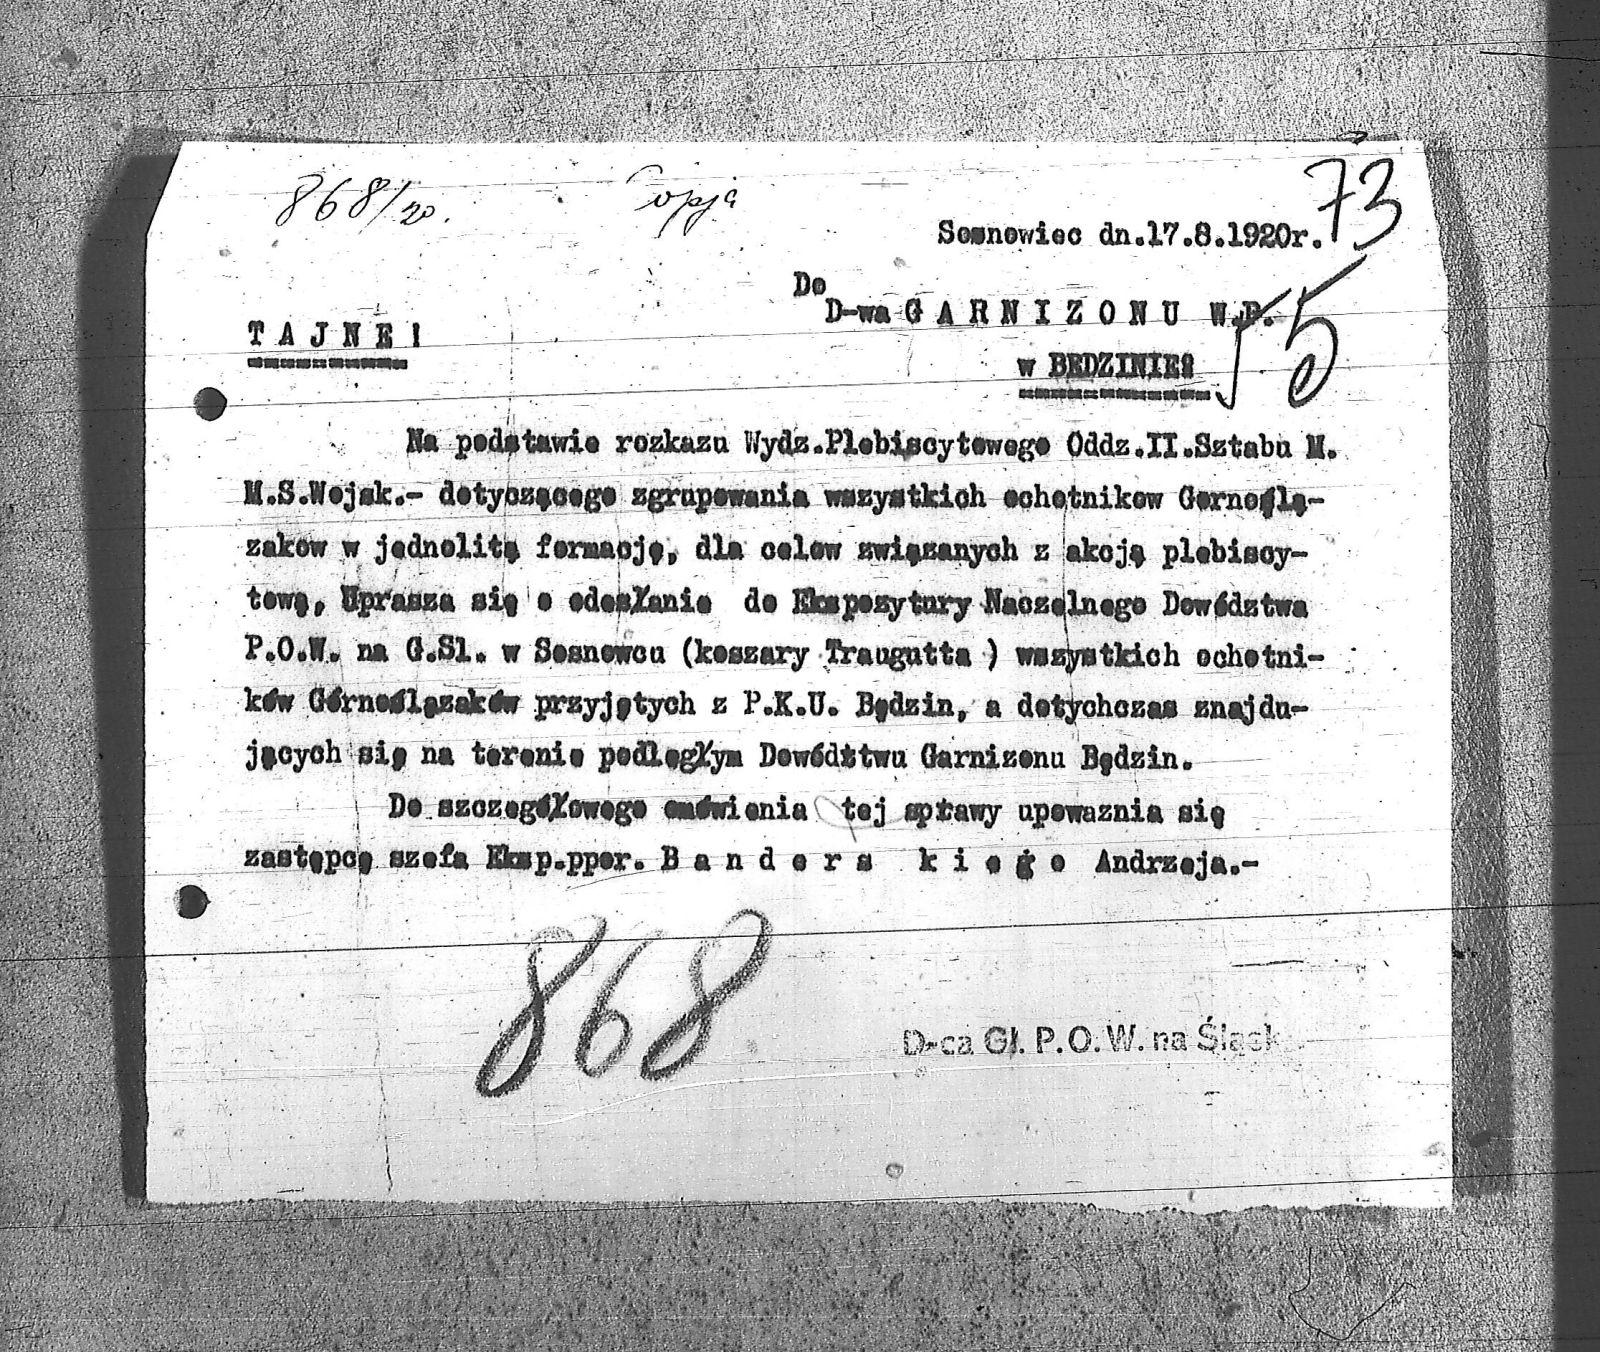 868/20. Copja
73
Sosnowiec dn.17.8.1920r.
Do
D-wa GARNIZONU W.P.
55
TAJNE!
w BĘDZINIE:
Na podstawie rozkazu Wydz.Plebiscytowego Oddz.II.Sztabu M.
M.S.Wojsk.- dotyczącego zgrupowania wszystkich ochotnikow Gornoślą-
zakow w jednolitą formację, dla celow związanych z akcją plebiscy-
tową, Uprasza się o odesłanie do Ekspozytury Naczelnego Dowództwa
P.O.W. na G.Sl. w Sosnowcu (koszary Traugutta ) wszystkich ochotni-
ków Górnoślązaków przyjętych z P.K.U. Będzin, a dotychczas znajdu-
jących się na terenie podległym Dowództwu Garnizonu Będzin.
Do szczegółowego omówienia tej sprawy upowaznia się
zastępcę szefa Eksp.ppor. Banderskiego Andrzeja.-
868
D-ca Gł. P.O.W. na Śląsk